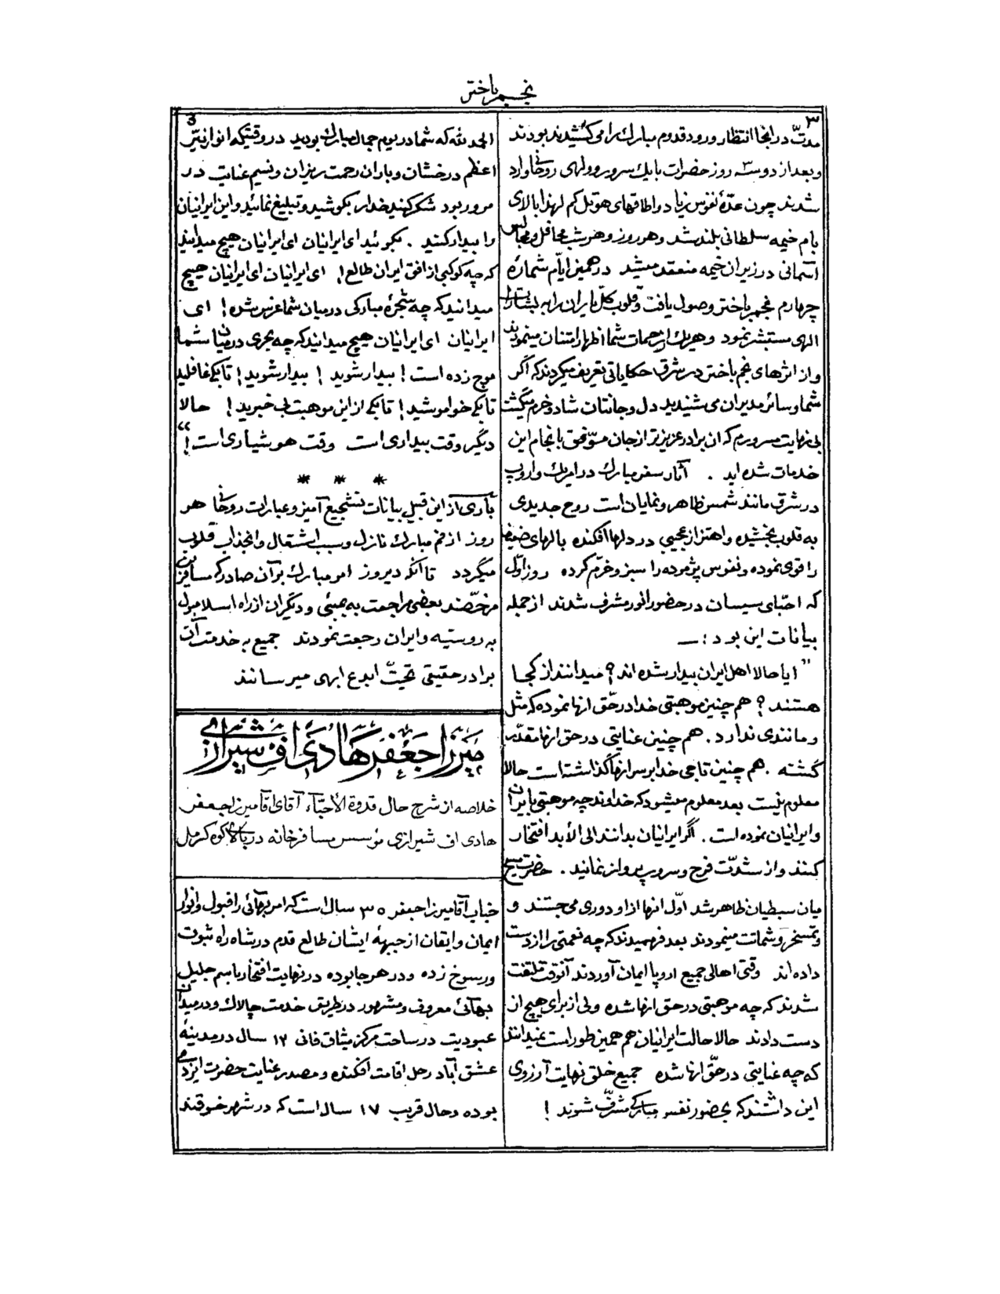 نجم باختر
۳
5
مدتّ در اینجا انتظار ورود قدوم مبارک را می کشیدند بودند
و بعد از دو سه روز حضرات با یک سرور و ولهی روحانی وارد
شدند چون عدّۀ نفوس زیاد و اطاقهای هوتل کم لهذا بالای
بام خیمه سلطانی بلند شد و هر روز و هر شب محافل و مجالس
آسمانی در زیر ان خیمه منعقد میشد در همین ایّام شمارۀ
چهارم نجم باختر وصول یافت و قلوب کلّ یاران را به بشارات
الهی مستبشر نمود و هر یک از زحمات شما اظهار امتنان مینمودند
و از اثرهای نجم باختر در شرق حکایاتی تعریف میکردند که اگر
شما و سائر مدیران می شنیدید دل و جانتان شاد و خرم میگشت
بی نهایت مسرورم که ان برادر عزیزتر از جان موّفق بانجام این
خدمات شده اید . آثار سفر مبارک در امریک و اروپ
در شرق مانند شمس ظاهر و نمایان است روح جدیدی
به قلوب بخشیده و اهتزاز عجیبی در دلها افکنده بالهای ضعیف
را قوی نموده و نفوس پژمرده را سبز و خرّم کرده روز اوّل
که احبّای سیسان در حضور انور مشرف شدند از جمله
بیانات این بود : ــ
" ایا حالا اهل ایران بیدار شده اند ؟ میدانند از کجا
هستند ؟ هم چنین موهبتی خدا در حّق انها نموده که مثل
و مانندی ندارد . هم چنین عنایتی در حق انها مقدّر
گشته . هم چنین تاجی خدا بر سر انها گذاشته است حالا
معلوم نیست بعد معلوم میشود که خداوند چه موهبتی بایران
و ایرانیان نموده است . اگر ایرانیان بدانند الی الأبد افتخار
کنند و از شدّت فرح و سرور پرواز نمایند . حضرت مسیح
میان سبطیان ظاهر شد اوّل انها از او دوری می جستند و
و تمسخر و شماتت مینمودند بعد فهمیدند که چه نعمتی را از دست
داده اند وقتی اهالی جمیع اروپا ایمان آوردند آنوقت ملتفت
شدند که چه موهبتی در حق انها شده ولی از برای هیچ از
دست دادند حالا حالت ایرانیان هم همین طور است نمیدانند
که چه عنایتی در حّق انها شده جمیع خلق نهایت آرزوی
این داشتند که بحضور نفس مبارکی مشرّف شوند !
الحمد لله که شما در یوم جمال مبارک بودید در وقتیکه انوار نیّر
اعظم درخشان و باران رحمت ریزان و نسیم عنایت در
مرور بود شکر کنید خدا را بکوشید و تبلیغ نمائید و این ایرانیان
را بیدار کنید . بگوئید ای ایرانیان ای ایرانیان هیچ میدانید
که چه کوکبی از افق ایران طالع ! ای ایرانیان ای ایرانیان هیچ
میدانید که چه شجرۀ مبارکی در میان شما غرس شده ! ای
ایرانیان ای ایرانیان هیچ میدانید که چه بحری در میان شما
موج زده است ! بیدار شوید ! بیدار شوید ! تا بکی غافلید
تا بکی خواموشید ! تا بکی از این موهبت بی خبرید ! حالا
دیگر وقت بیداری است وقت هوشیاری است ! "
* * *
باری از این قبیل بیانات تشجیع آمیز و عبارات روحانی هر
روز از فم مبارک نازل و سبب اشتعال و انجذاب قلوب
میگردد تا آنکه دیروز امر مبارک بر آن صادر که مسافرین
مرخّصند بعضی مراجعت به بمبئی و دیگران از راه اسلامبول
به روسیّه و ایران رجعت نمودند جمیع به خدمت آن
برادر حقیقی تحیّت ابدع ابهی میرسانند
میرزا جعفر هادی اف شیرازی
خلاصه از شرح حال قدوة الأحبّاء آقای آقا میرزا جعفر
هادی اف شیرازی مؤسس مسافرخانه در بالای کوه کرمل
جناب آقا میرزا جعفر ۳۵ سال است که امر بهائی را قبول و انوار
ایمان و ایقان از جبهۀ ایشان طالع قدم در شاه راه ثبوت
و رسوخ زده و در هر جا بوده در نهایت افتخار باسم جلیل
بهائی معروف و مشهور در طریق خدمت چالاک و در میدان
عبودیت در ساحت مرکز میثاق فانی ۱۲ سال در مدینۀ
عشق آباد رحل اقامت افکنده و مصدر عنایت حضرت ایزدی
بوده و حال قریب ۱۷ سال است که در شهر خوقند